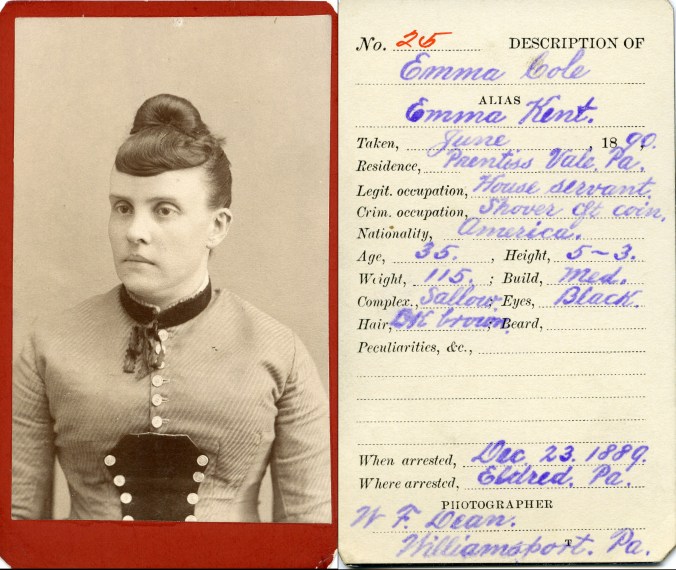 No. 25 DESCRIPTION OF
Emma Cole
ALIAS
Emma Kent.
Taken, June , 1890.
Residence, Prentiss Vale, Pa.
Legit. occupation, House servant.
Crim. occupation, Shover cft coin.
Nationality, America.
Age, 35. , Height, 5-3.
Weight, 115. ; Build, Med.
Complex., Sallow; Eyes, Black.
Hair, DK brown; Beard,
Peculiarities, &c.,
When arrested, Dec. 23. 1889.
Where arrested, Eldred. Pa.
PHOTOGRAPHER
W. F. Dean.
Williamsport. Pa.
T